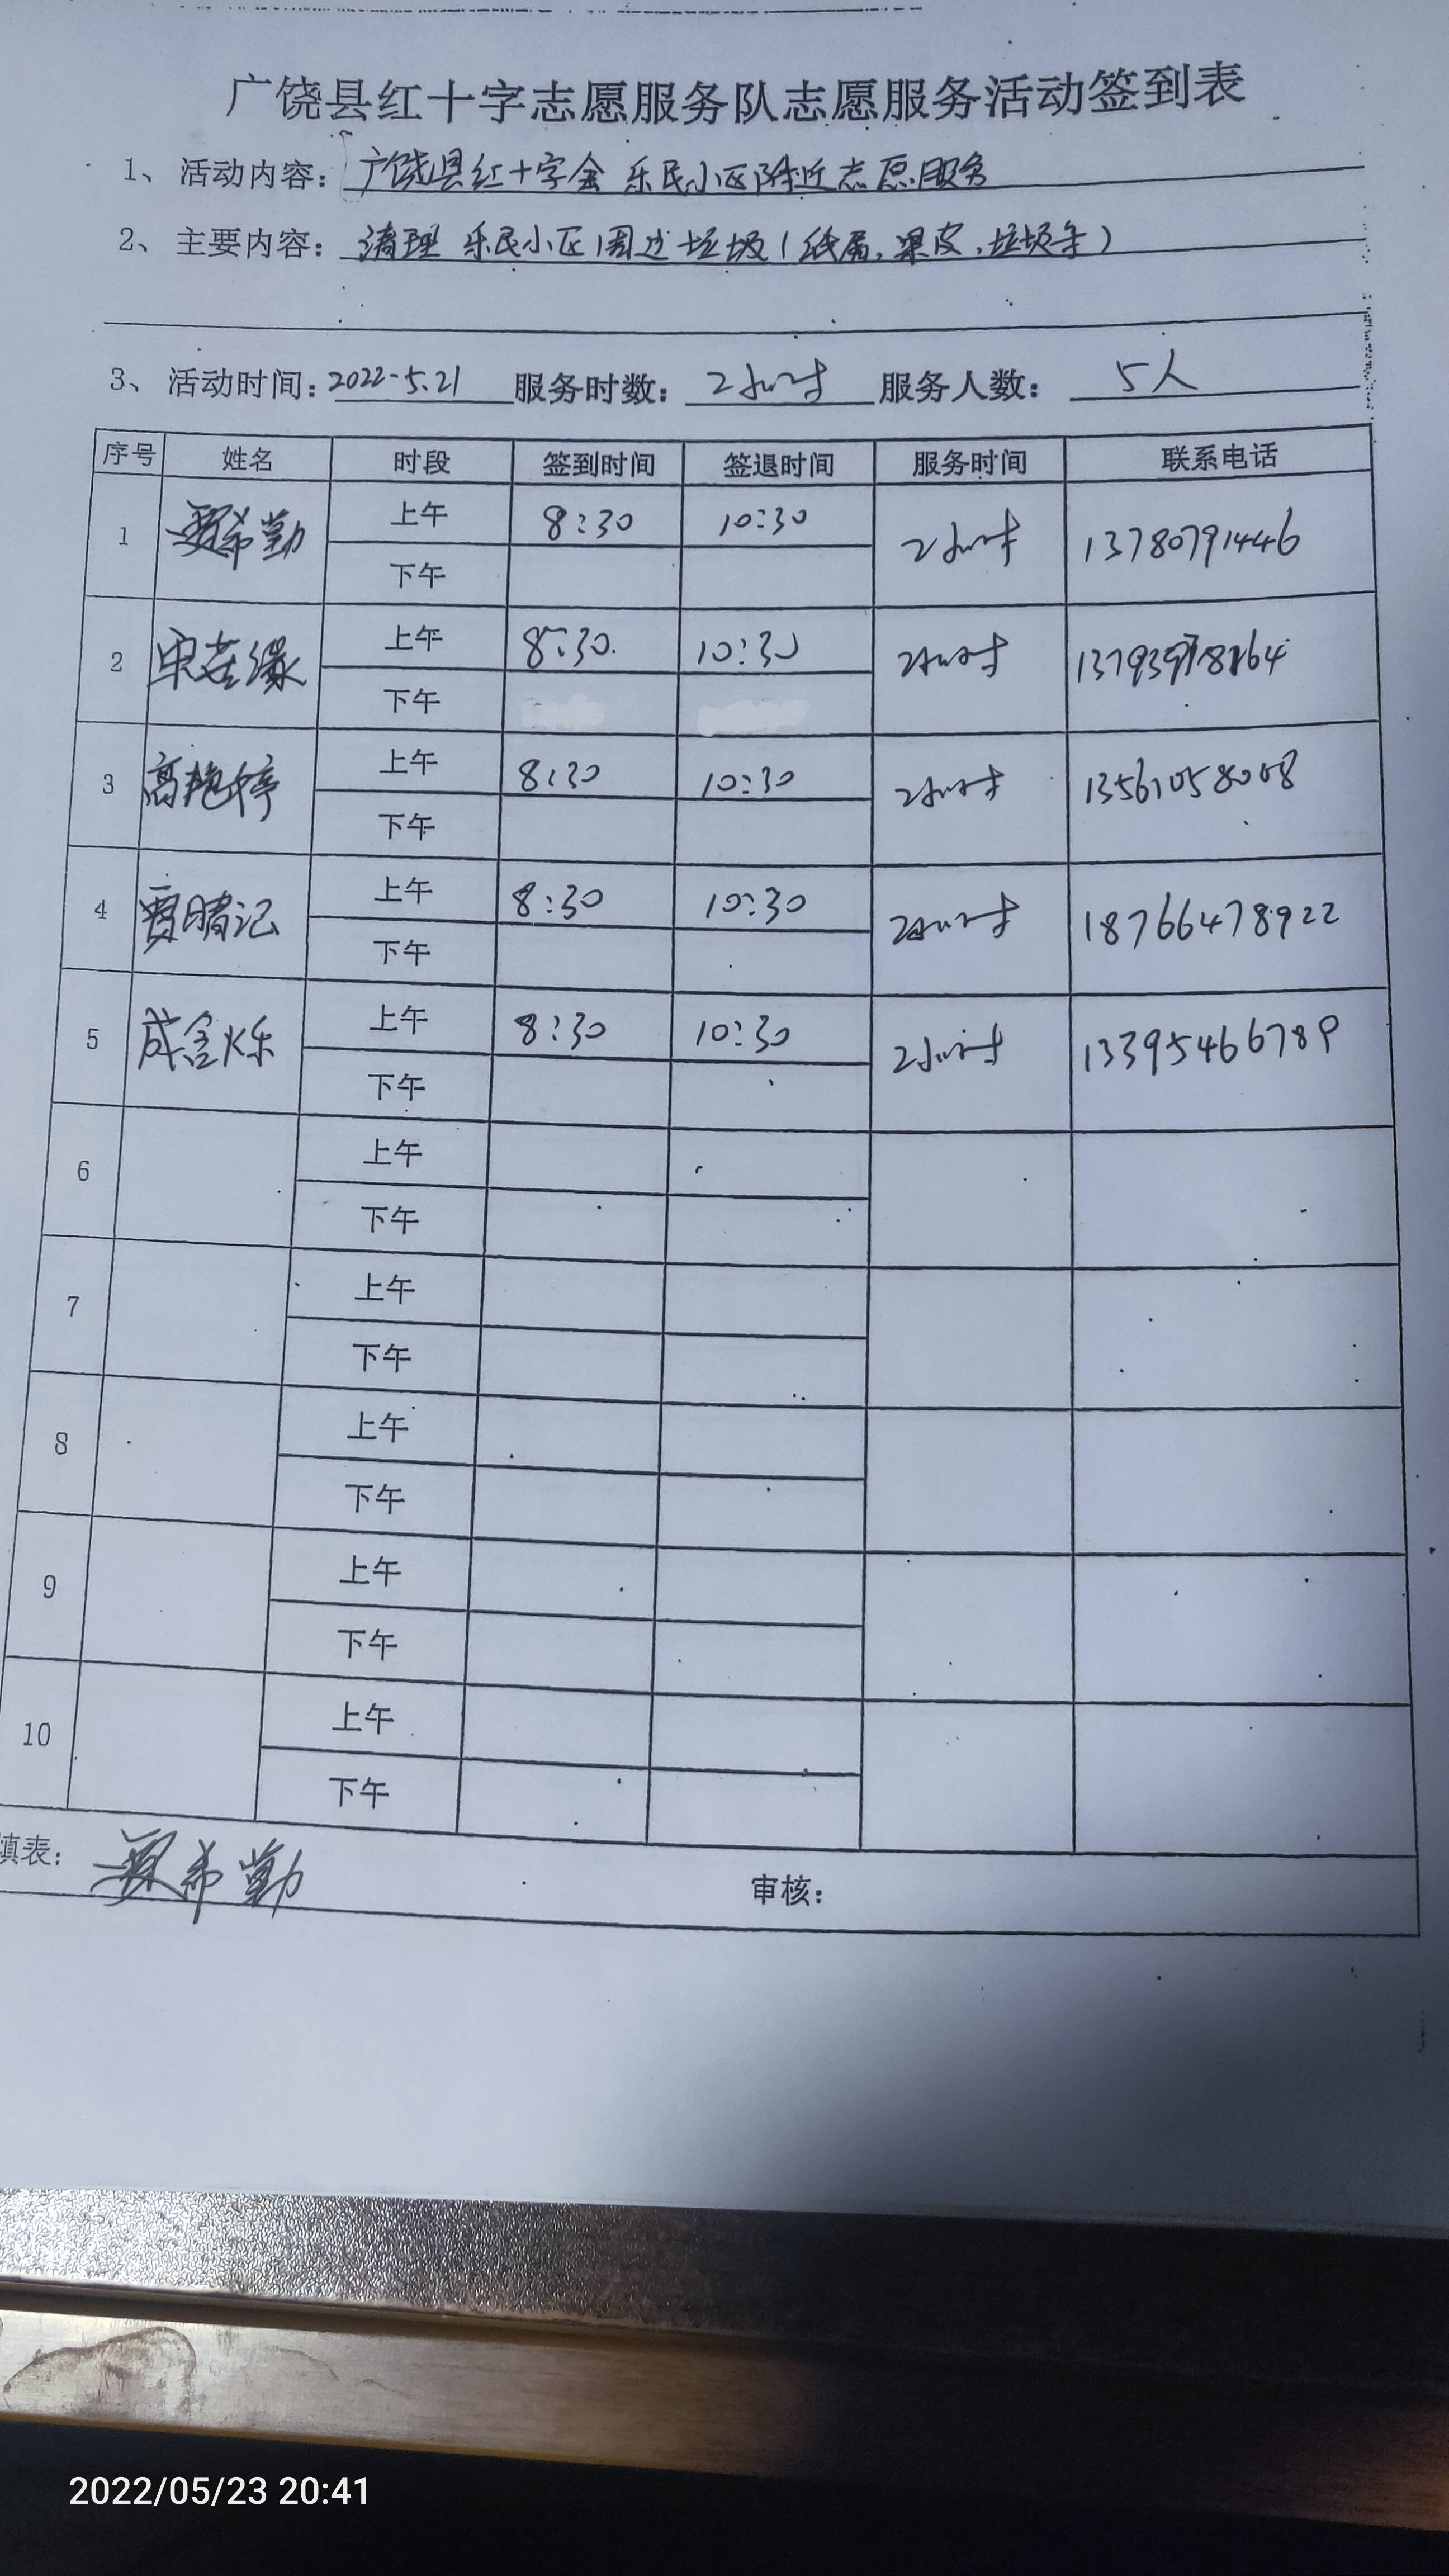 广饶县红十字志愿服务队志愿服务活动签到表
1、活动内容：广饶县红十字会 乐民小区附近志愿服务
2、主要内容：清理 乐民小区周边垃圾（纸屑，果皮，垃圾等）
3、活动时间：2022-5.21 服务时数：2小时 服务人数：5人
序号 姓名 时段 签到时间 签退时间 服务时间 联系电话
1 希勤 上午 8:30 10:30 2小时 13780791446
下午
2 上午 8:30 10:30 2小时
下午
3 高艳婷 上午 8:30 10:30 2小时 13561058008
下午
4 贾晴记 上午 8:30 10:30 2小时 18766478922
下午
5 成金烁 上午 8:30 10:30 2小时 13395466789
下午
6 上午
下午
7 上午
下午
8 上午
下午
9 上午
下午
10 上午
下午
填表： 希勤 审核：
2022/05/23 20:41